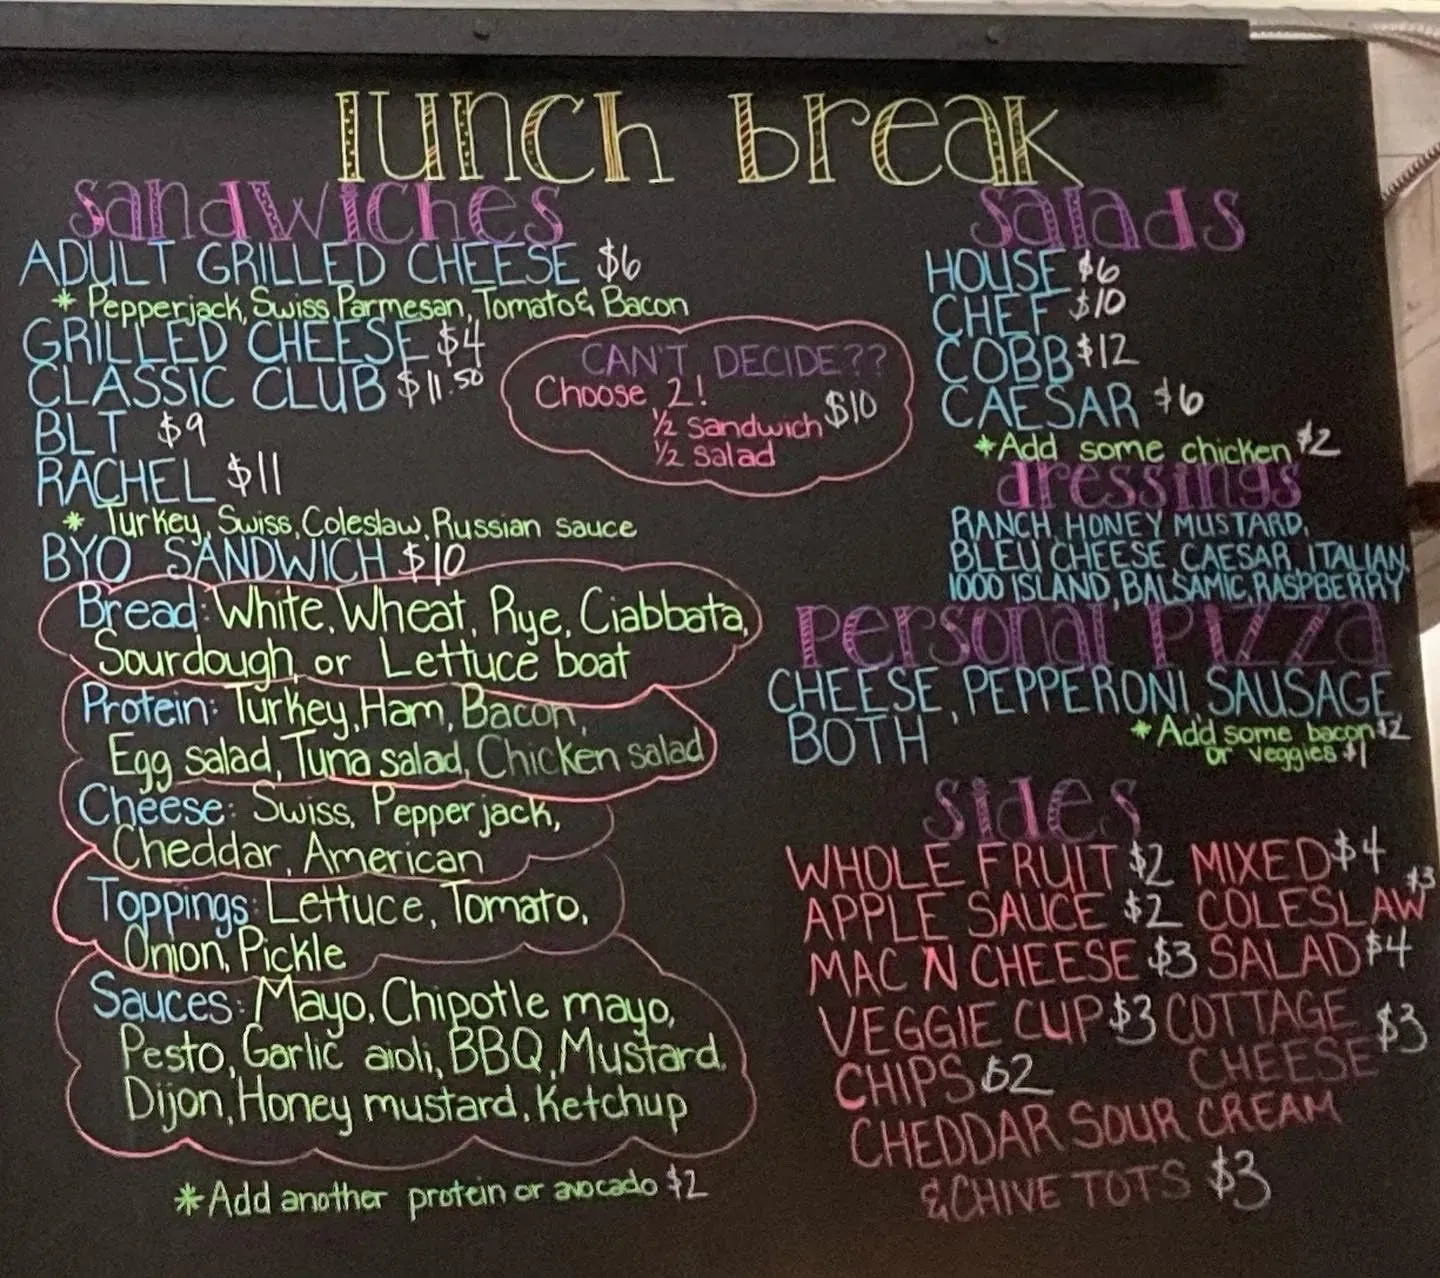 lunch break
sandwiches
ADULT GRILLED CHEESE $6
* Pepperjack, Swiss, Parmesan, Tomato & Bacon
GRILLED CHEESE $4
CLASSIC CLUB $11.50
BLT $9
RACHEL $11
* Turkey, Swiss, Coleslaw, Russian sauce
BYO SANDWICH $10
Bread: White, Wheat, Rye, Ciabbata,
Sourdough, or Lettuce boat
Protein: Turkey, Ham, Bacon,
Egg salad, Tuna salad, Chicken salad
Cheese: Swiss, Pepperjack,
Cheddar, American
Toppings: Lettuce, Tomato,
Onion, Pickle
Sauces: Mayo, Chipotle mayo,
Pesto, Garlic aioli, BBQ, Mustard,
Dijon, Honey mustard, Ketchup
* Add another protein or avocado $2
CAN'T DECIDE??
Choose 2!
1/2 sandwich $10
1/2 salad
salads
HOUSE $6
CHEF $10
COBB $12
CAESAR $6
* Add some chicken $2
dressings
RANCH, HONEY MUSTARD,
BLEU CHEESE, CAESAR, ITALIAN,
1000 ISLAND, BALSAMIC, RASPBERRY
personal pizza
CHEESE, PEPPERONI, SAUSAGE,
BOTH
* Add some bacon $2
or veggies $1
sides
WHOLE FRUIT $2 MIXED $4
APPLE SAUCE $2 COLESLAW $3
MAC N CHEESE $3 SALAD $4
VEGGIE CUP $3 COTTAGE
CHIPS $2 CHEESE $3
CHEDDAR SOUR CREAM
& CHIVE TOTS $3